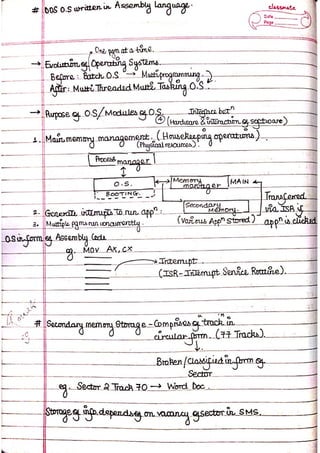 classmate
Date
Page
# DOS O.S written in Assembly Language.
One pgm at a time.
→ Evolution of Operating Systems.
Before: Batch O.S → Multiprogramming.
After: Multi Threaded Multi Tasking O.S.
→ Purpose of O.S/Modules of O.S. Interface betn
(Hardware & interaction of software)
1. Main memory management. (Housekeeping operations)
(Physical resources).
Process manager
O.S.
BOOTING
Memory manager
MAIN
Secondary Memory
(Various Appn Stored)
Transferred via ISR if appn is clicked
2. Generate interrupts to run appn.
3. Multiple pgms run concurrently.
O.S in form of Assembly Code
eg. MOV AX, CX
→ Interrupt.
(ISR - Interrupt Service Routine).
# Secondary memory Storage - Comprises of track in
circular form. (77 Tracks).
Broken/Classified in form of
Sector
eg. Sector 2 Track 70 → Word Doc.
Storage of info depends on vacancy of sector in SMS.